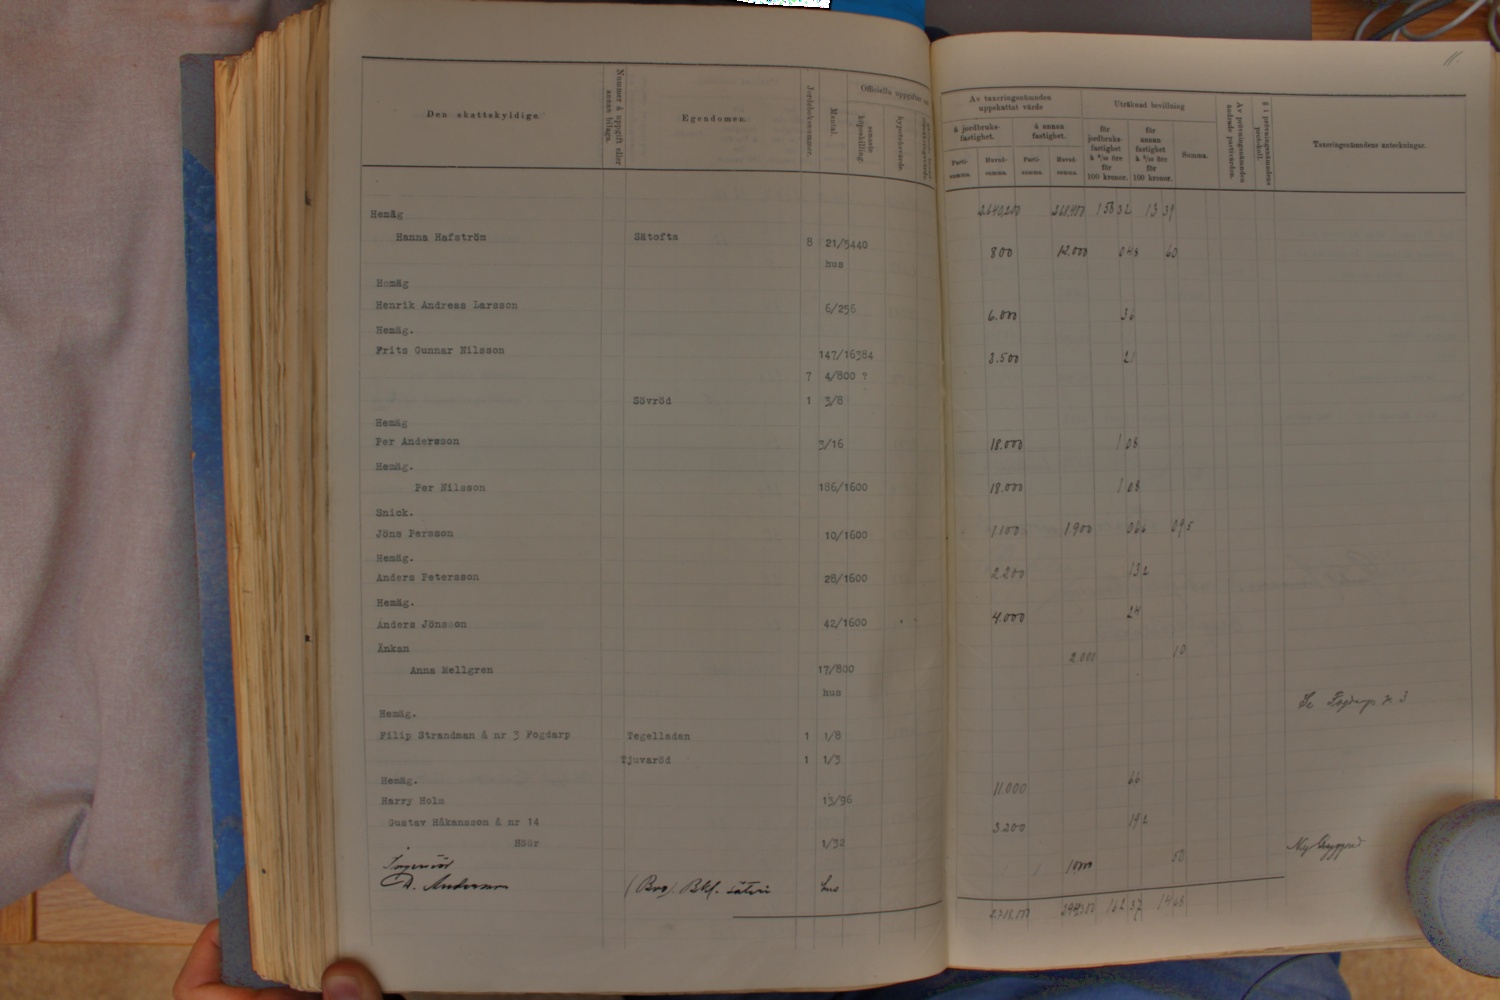 11.
Den skattskyldige.
Nummer å uppgift eller annan bilaga.
Egendomen.
Jordeboksnummer.
Mantal.
Officiella uppgifter
senaste köpeskilling.
hypoteksvärde.
Av taxeringsnämnden uppskattat värde
å jordbruksfastighet.
å annan fastighet.
Partisumma.
Huvudsumma.
Partisumma.
Huvudsumma.
Uträknad bevillning
för jordbruksfastighet å 6/10 öre för 100 kronor.
för annan fastighet å 5/10 öre för 100 kronor.
Summa.
Av prövningsnämnden ändrade partivärden.
§ i prövningsnämndens protokoll.
Taxeringsnämndens anteckningar.
2640,200 260,400 158 32 13 39
Hemäg
Hanna Hafström Sätofta 8 21/5440 800 12.000 048 60
hus
Hemäg
Henrik Andreas Larsson 6/256 6.000 36
Hemäg.
Frits Gunnar Nilsson 147/16384 3.500 21
7 4/800 ?
Sövröd 1 3/8
Hemäg
Per Andersson 3/16 18.000 1 08
Hemäg.
Per Nilsson 186/1600 18.000 1 08
Snick.
Jöns Persson 10/1600 1.100 1.900 066 095
Hemäg.
Anders Petersson 28/1600 2200 132
Hemäg.
Anders Jönsson 42/1600 4.000 24
Änkan
Anna Mellgren 17/800 2.000 10
hus
Hemäg.
Filip Strandman å nr 3 Fogdarp Tegelladan 1 1/8 Se Fogdarp N 3
Tjuvaröd 1 1/3
Hemäg.
Harry Holm 13/96 11.000 66
Gustav Håkansson å nr 14
Höör 1/32 3200 192
Ingeniör
Andersson hus 1000 50 Ny
162 37 14 68